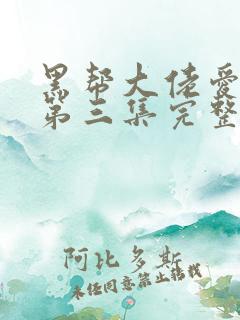 黑帮大佬爱
第三集完整
阿比多斯
未经同意禁止转载